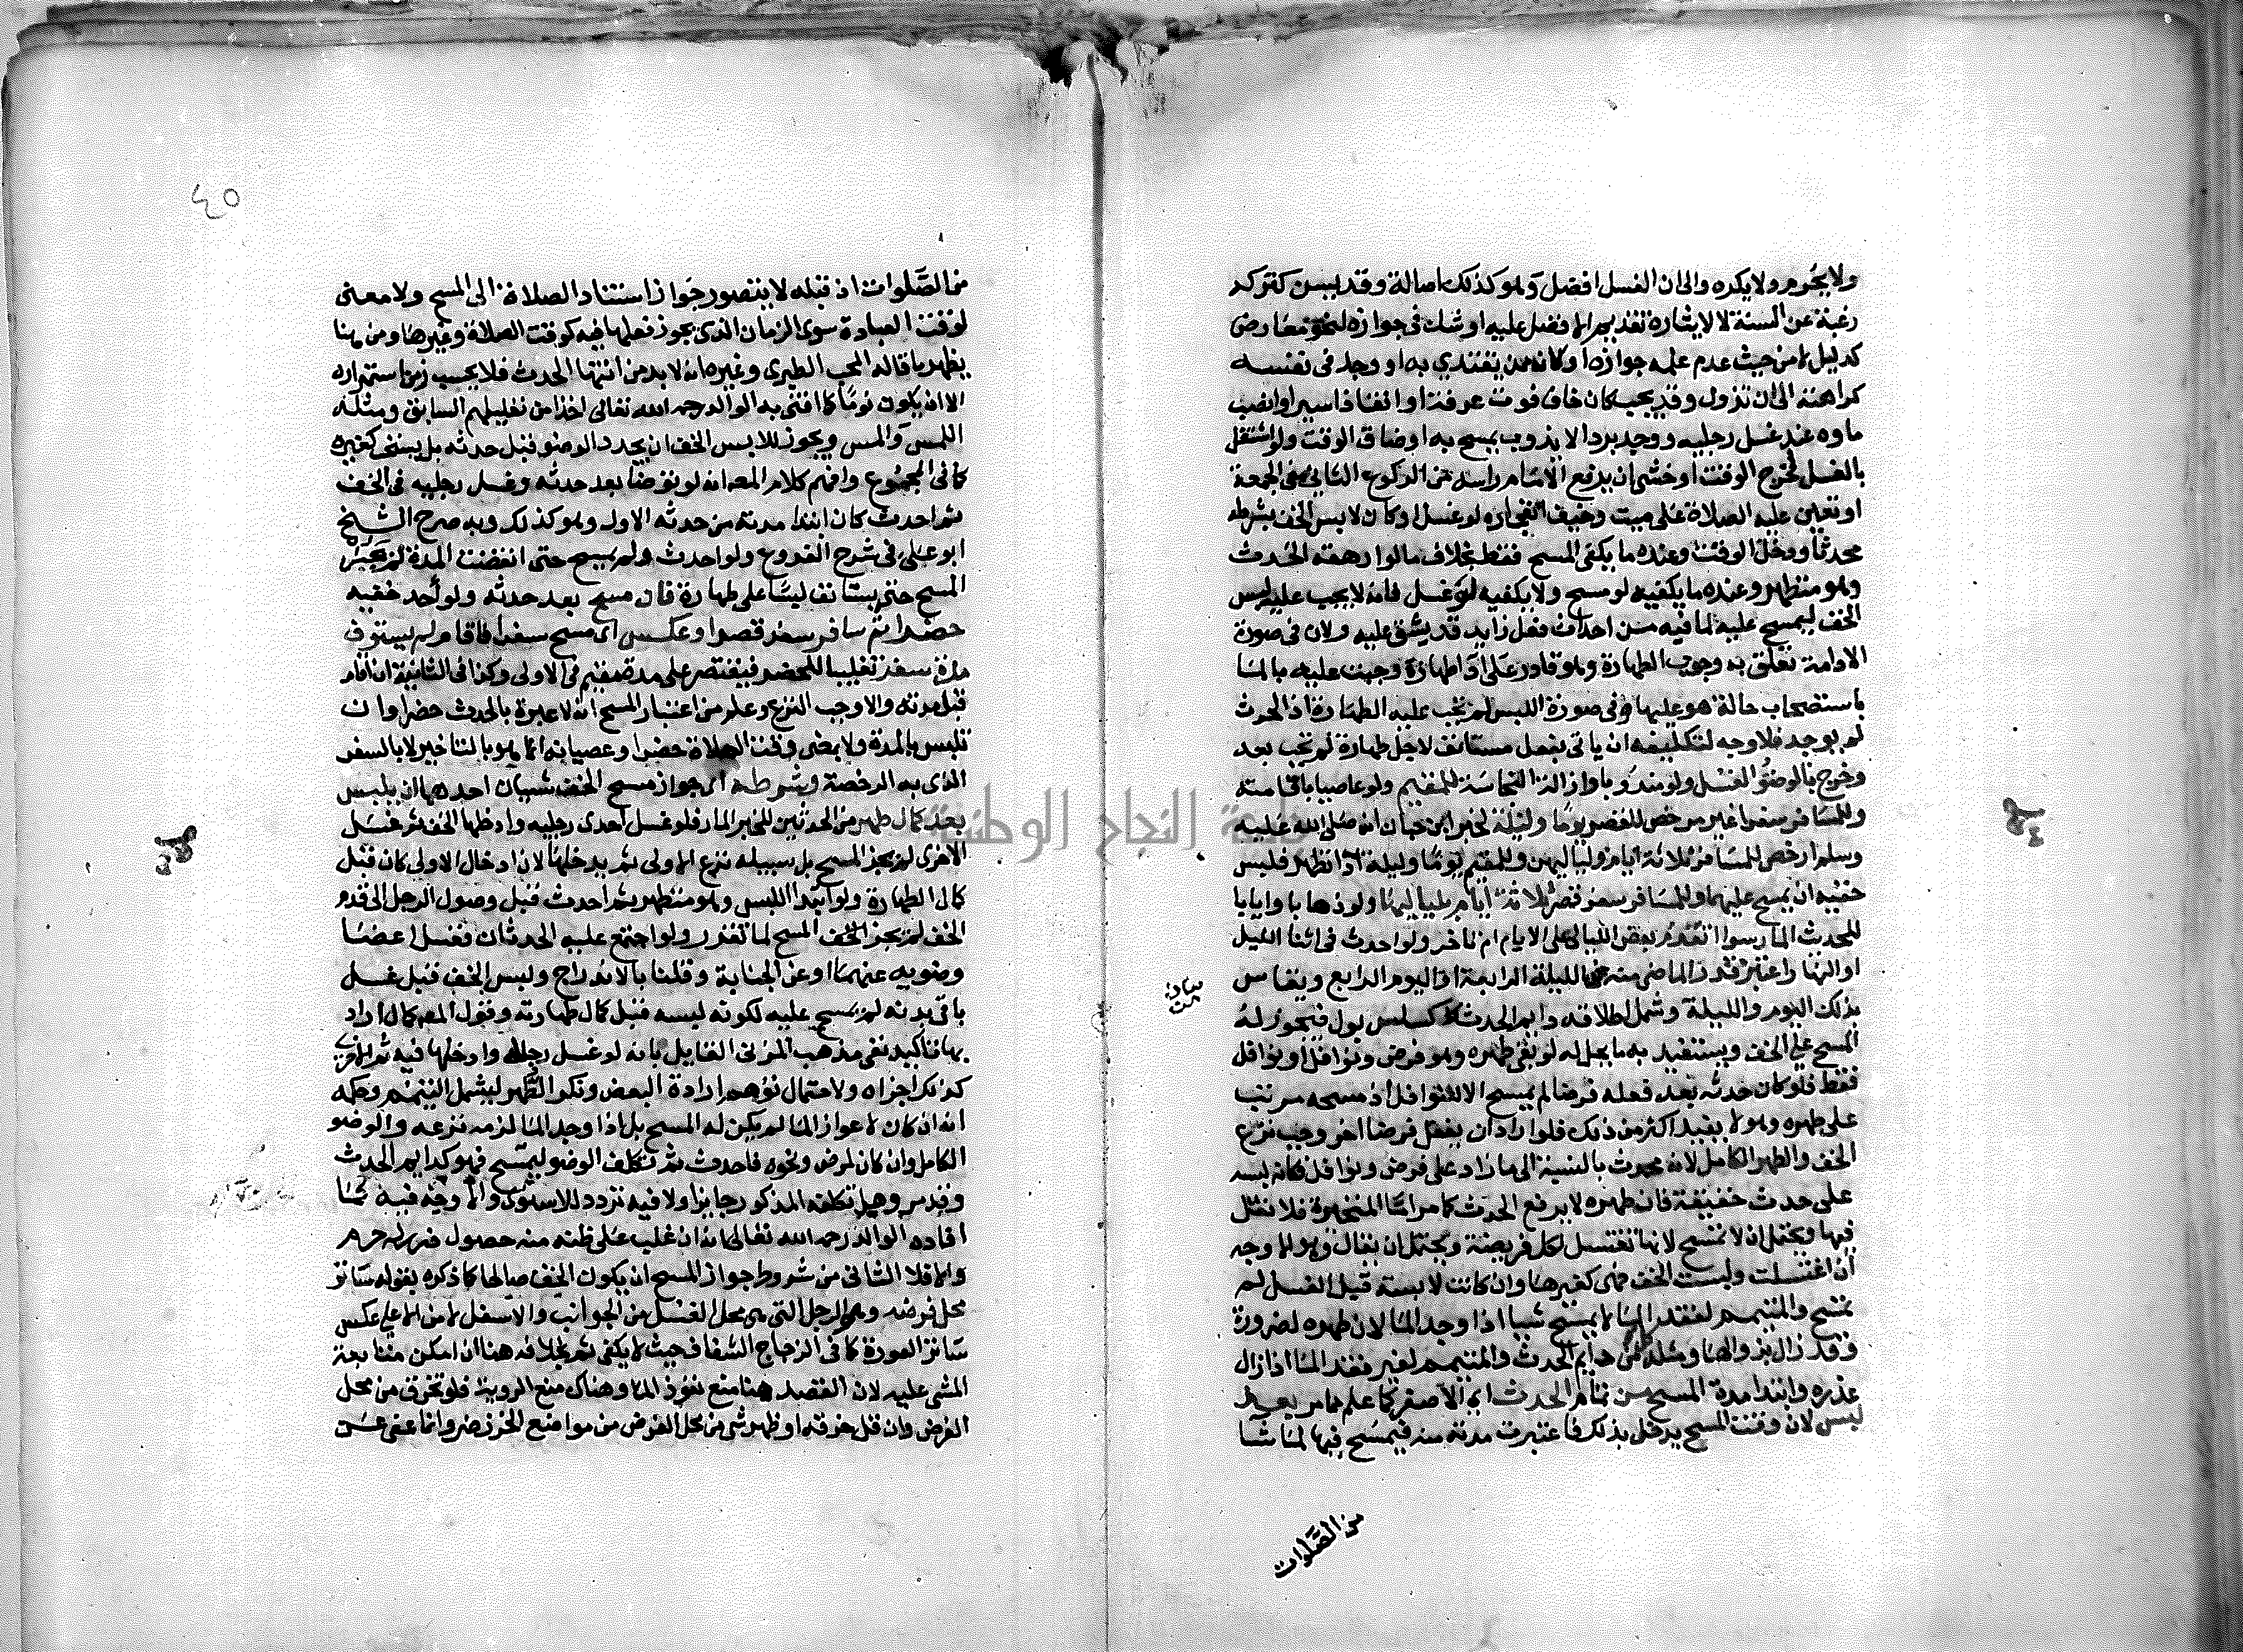 ولا يحرم ولا يكره والى ان الغسل افضل وهو كذلك اصالة وقد يسن كتركه
رغبة عن السنة لا لايثاره تقديم الافضل عليه او شك في جوازه لنحو معارض
كدليل لا من حيث عدم علمه جوازه او كان ممن يقتدي به او وجد في نفسه
كراهته الى ان تزول وقد يجب كان خاف فوت عرفة او انقاذ اسير او انصب
ماوه عند غسل رجليه ووجد بردا لا يذوب يمسح به او ضاق الوقت ولو اشتغل
بالغسل لخرج الوقت او خشي ان يرفع الامام راسه من الركوع الثاني في الجمعة
او تعين عليه الصلاة على ميت وخيف انفجاره لو غسل وكان لابس الخف بشرطه
محدثا ودخل الوقت وعنده ما يكفي المسح فقط بخلاف ما لو ارهقه الحدث
وهو متطهر وعنده ما يكفيه لو مسح ولا يكفيه لو غسل فانه لا يجب عليه لبس
الخف ليمسح عليه لما فيه من احداث فعل زايد قد يشق عليه ولان في صورة
الادامة تعلق به وجوب الطهارة وهو قادر على اداء طهارة وجبت عليه بالما
باستصحاب حالة هو عليها وفي صورة اللبس لم تجب عليه الطهارة اذ الحدث
لم يوجد فلا وجه لتكليفه ان ياتي بفعل مستانف لاجل طهارة لم تجب بعد
وخرج بالوضو الغسل ولو مندوبا وازالة النجاسة للمقيم ولو عاصيا باقامته
وللمسافر سفرا غير مرخص للقصر يوما وليلة لخبر ابن حبان انه صلى الله عليه
وسلم ارخص للمسافر ثلاثة ايام ولياليهن وللمقيم يوما وليلة اذا تطهر فلبس
خفيه ان يمسح عليهما وللمسافر سفر قصر ثلاثة ايام بلياليها ولو ذهابا وايابا
للحديث المار سوا تقدم بعض الليالي على الايام ام تاخر ولو احدث في اثنا الليل
او النهار اعتبر قدر الماضي منه من الليلة الرابعة او اليوم الرابع ويقاس
بذلك اليوم والليلة وشمل اطلاقه دايم الحدث كسلس بول فيجوز له
المسح على الخف ويستفيد به ما يحل له لو بقي طهره وهو فرض ونوافل او نوافل
فقط فلو كان حدثه بعد فعله فرضا لم يمسح الا للنوافل اذ مسحه مرتب
على طهره وهو لا يفيد اكثر من ذلك فلو اراد ان يفعل فرضا اخر وجب نزع
الخف والطهر الكامل لانه محدث بالنسبة الى ما زاد على فرض ونوافل فكانه لبسه
على حدث حقيقة فان طهره لا يرفع الحدث كما مر اما المتحيرة فلا نقل
فيها ويحتمل ان لا تمسح لانها تغتسل لكل فريضة ويحتمل ان يقال وهو الاوجه
ان اغتسلت ولبست الخف فهي كغيرها وان كانت لابسة قبل الغسل لم
تمسح والمتيمم لفقد الما لا يمسح شيا اذا وجد الما لان طهره لضرورة
وقد زال بزوالها ومثله من دايم الحدث والمتيمم لغير فقد الما اذا زال
عذره وابتدا مدة المسح من تمام الحدث اي الاصغر كما علم مما مر بعد
لبس لان وقت المسح يدخل بذلك فاعتبرت مدته منه فيمسح فيها لما شا
من الصلوات
من الصلوات اذ قبله لا يتصور جواز استناد الصلاة الى المسح ولا معنى
لوقت العبادة سوى الزمان الذي يجوز فعلها فيه كوقت الصلاة وغيرها ومن هنا
يظهر ما قاله المحب الطبري وغيره انه لا بد من انتها الحدث فلا يحسب زمن استمراره
الا ان يكون نوما كما افتى به الوالد رحمه الله تعالى اخذا من تعليلهم السابق ومثله
اللمس والمس ويجوز للابس الخف ان يجدد الوضو قبل حدثه بل يسن كغيره
كما في المجموع وافهم كلام المص انه لو توضا بعد حدثه وغسل رجليه في الخف
ثم احدث كان ابتدا مدته من حدثه الاول وهو كذلك وبه صرح الشيخ
ابو علي في شرح الفروع ولو احدث ولم يمسح حتى انقضت المدة لم يجز
المسح حتى يستانف لبسا على طهارة فان مسح بعد حدثه ولو احد خفيه
حضرا ثم سافر سفر قصر او عكس اي مسح سفرا فاقام لم يستوف
مدة سفر تغليبا للحضر فيقتصر على مدة مقيم في الاولى وكذا في الثانية ان اقام
قبل مدته والا وجب النزع وعلم من اعتبار المسح انه لا عبرة بالحدث حضرا وان
تلبس بالمدة ولا بمضي وقت الصلاة حضرا وعصيانه انما هو بالتاخير لا بالسفر
الذي به الرخصة وشرطه اي جواز مسح الخف شيان احدهما ان يلبس
بعد كمال طهر من الحدثين للخبر المار فلو غسل احدى رجليه وادخلها الخف ثم غسل
الاخرى لم يجز المسح بل سبيله نزع الاولى ثم يدخلها لان ادخال الاولى كان قبل
كمال الطهارة ولو ابتدا اللبس وهو متطهر ثم احدث قبل وصول الرجل الى قدم
الخف لم يجز المسح لما تقرر ولو اجتمع عليه الحدثان فغسل اعضا
وضويه عنهما او عن الجنابة وقلنا بالاندراج ولبس الخف قبل غسل
باقي بدنه لم يمسح عليه لكونه لبسه قبل كمال طهارته وقول المص كمال اراد
بها تاكيد نفي مذهب المزني القايل بانه لو غسل رجله وادخلها فيه ثم الاخرى
كذلك اجزاه ولاحتمال توهم ارادة البعض ونكر الطهر ليشمل التيمم وحكمه
انه ان كان لاعواز الما لم يكن له المسح بل اذا وجد الما لزمه نزعه والوضو
الكامل وان كان لمرض ونحوه فاحدث ثم تكلف الوضو ليمسح فهو كدايم الحدث
وقد مر وهل تكلفه المذكور جايز او لا فيه تردد للاسنوي والاوجه فيه كما
افاده الوالد رحمه الله تعالى انه ان غلب على ظنه منه حصول ضرر له حرم
والا فلا الثاني من شروط جواز المسح ان يكون الخف صالحا كما ذكره بقوله ساتر
محل فرضه وهي الرجل التي هي محل الغسل من الجوانب والاسفل لا من الاعلى عكس
ساتر العورة كما في الزجاج الشفاف حيث لا يكفي ثم بخلافه هنا ان امكن متابعة
المشي عليه لان القصد هنا منع نفوذ الما وهناك منع الروية فلو تخرق من محل
الفرض وان قل خرقه او ظهر شي من محل الفرض من مواضع الخرز ضر وانما عفي عن
٤٥